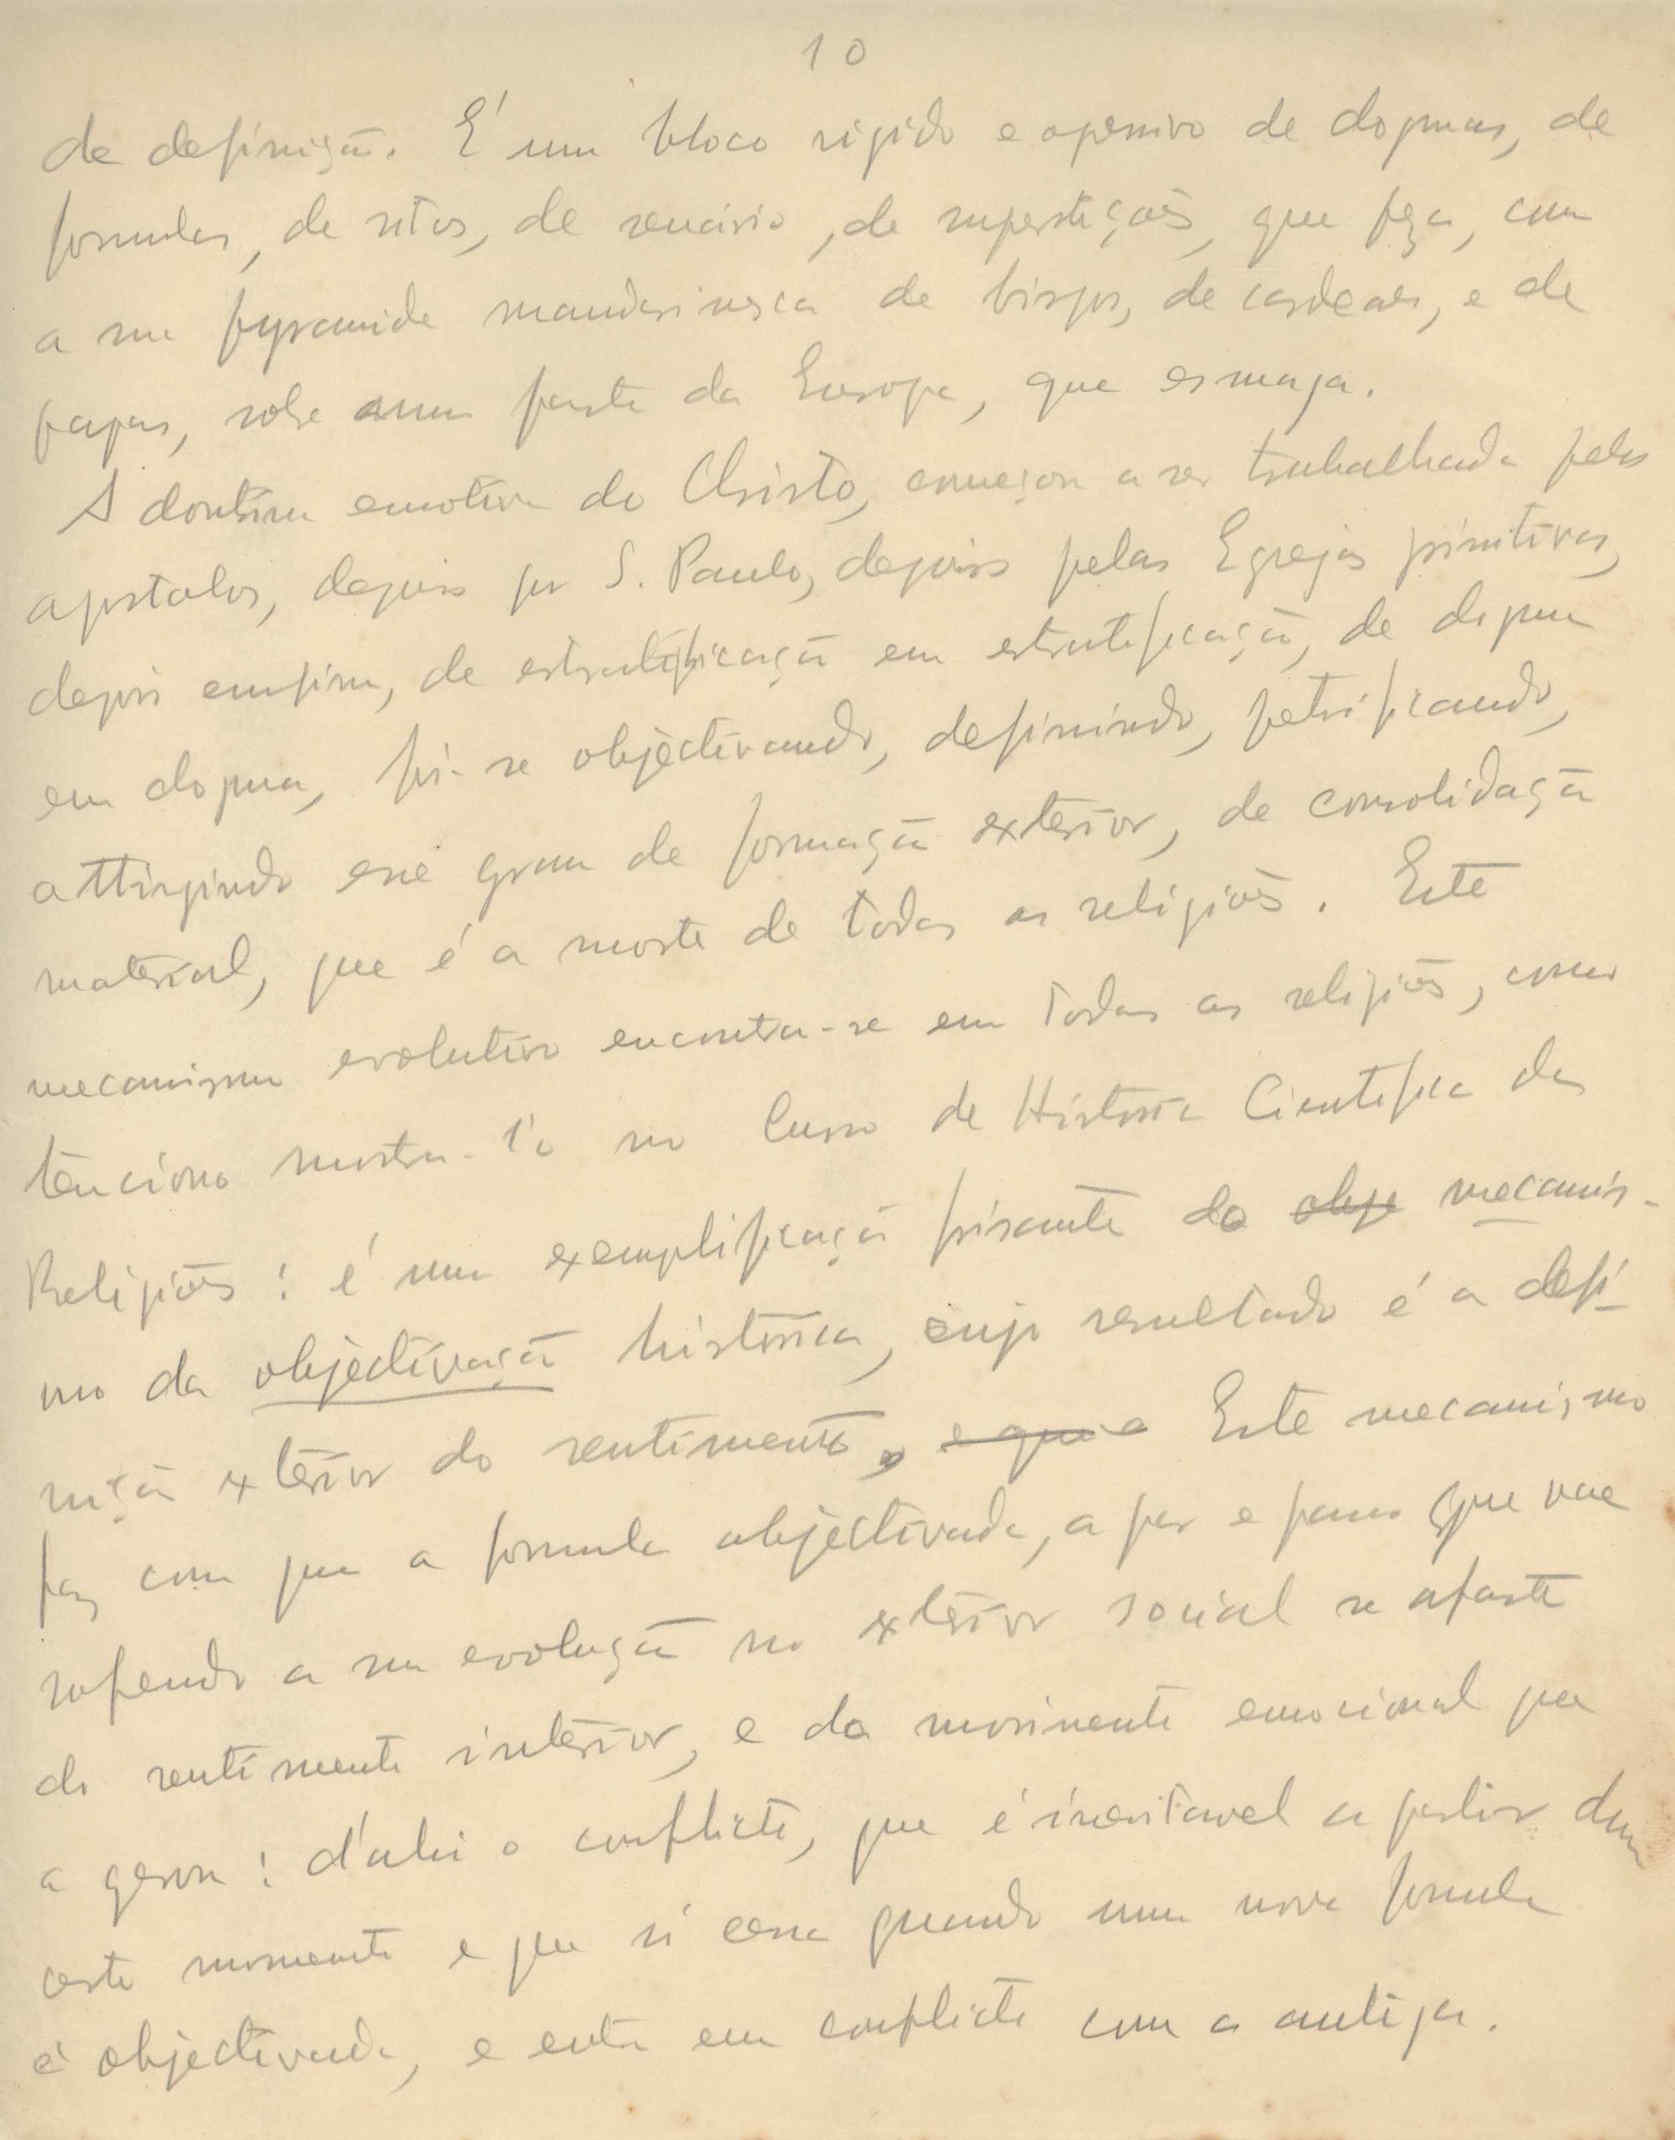 10
de definição. É um bloco rigido e opressivo de dogmas, de
formulas, de ritos, de scenario, de superstições, que peza, com
a sua pyramide mandarinesca de bispos, de cardeaes, e de
papas, sobre uma parte da Europa, que esmaga.
A doutrina emotiva do Christo, começou a ser trabalhada pelos
apostolos, depois por S. Paulo, depois pelas Egrejas primitivas,
depois emfim, de estratificação em estratificação, de dogma
em dogma, foi-se objectivando, definindo, petrificando,
attingindo esse grau de formação exterior, de consolidação
material, que é a morte de todas as religiões. Este
mecanismo evolutivo encontra-se em todas as religiões, como
tenciono mostra-l'o no Curso de Historia Cientifica das
Religiões: é uma exemplificação frisante do obje mecanis-
mo da objectivação historica, cujo resultado é a defi-
nição exterior do sentimento, e que o Este mecanismo
faz com que a formula objectivada, a par e passo que vae
sofrendo a sua evolução no exterior social se afaste
do sentimento interior, e do movimento emocional que
a gerou: d'ahi o conflicto, que é inevitavel a partir dum
certo momento e que só cessa quando uma nova formula
é objectivada, e entra em conflicto com a antiga.